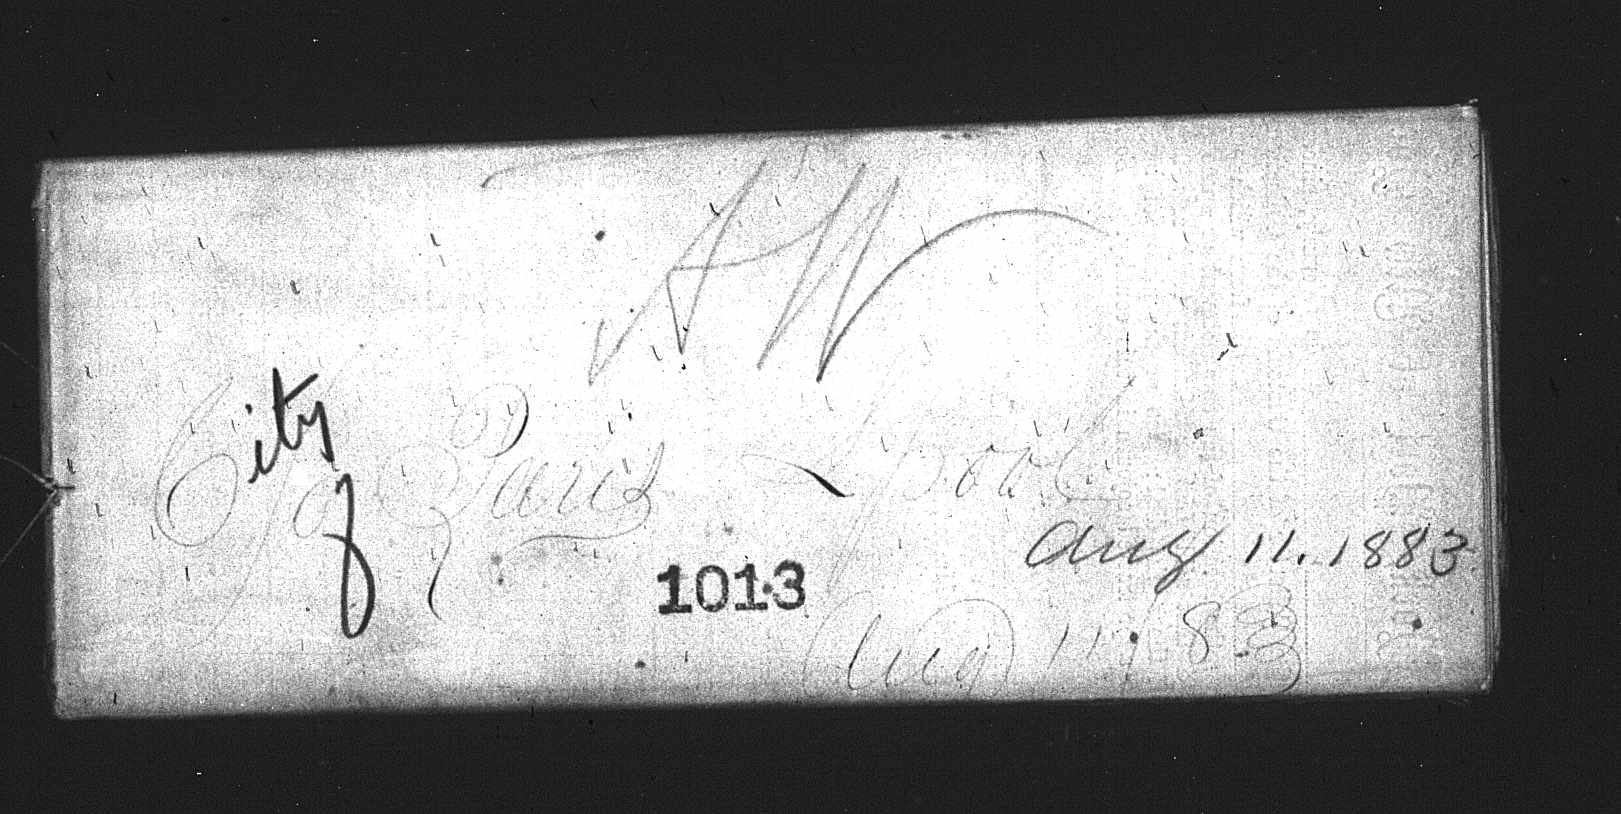 City of Paris L'pool
Aug 11. 1883
1013
Aug 11/83